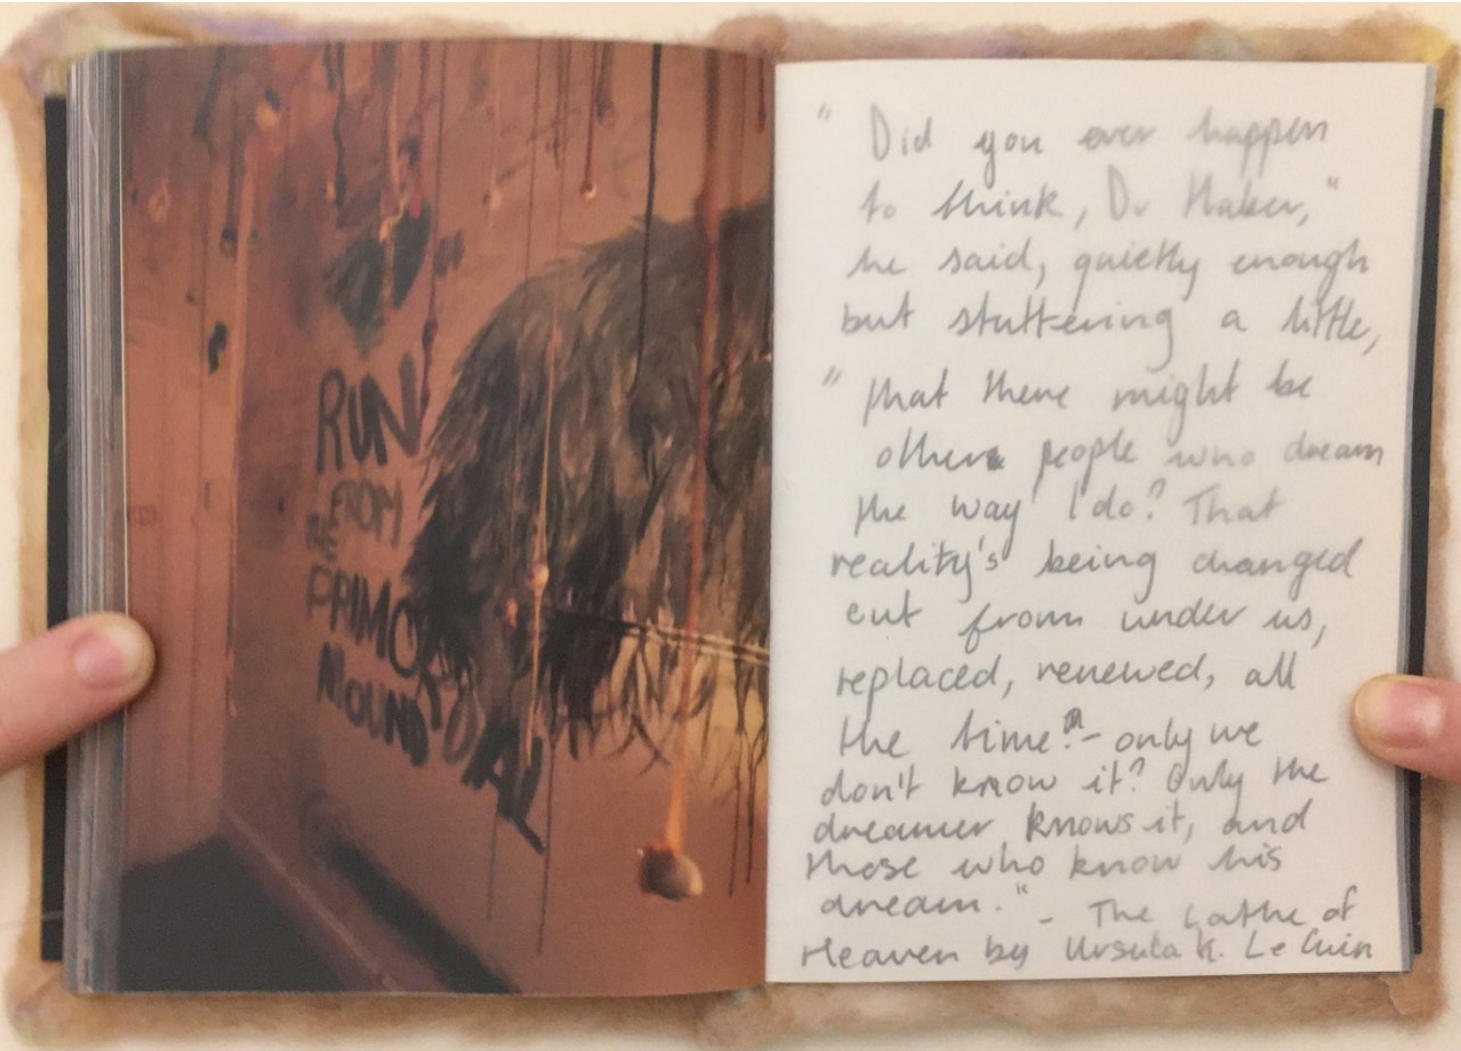 RUN
FROM
THE
PRIMORDIAL
MOUND
" Did you ever happen
to think, Dr Haber,"
he said, quietly enough
but stuttering a little,
" that there might be
other people who dream
the way I do? That
reality's being changed
out from under us,
replaced, renewed, all
the time? - only we
don't know it? Only the
dreamer knows it, and
those who know his
dream." - The Lathe of
Heaven by Ursula K. Le Guin